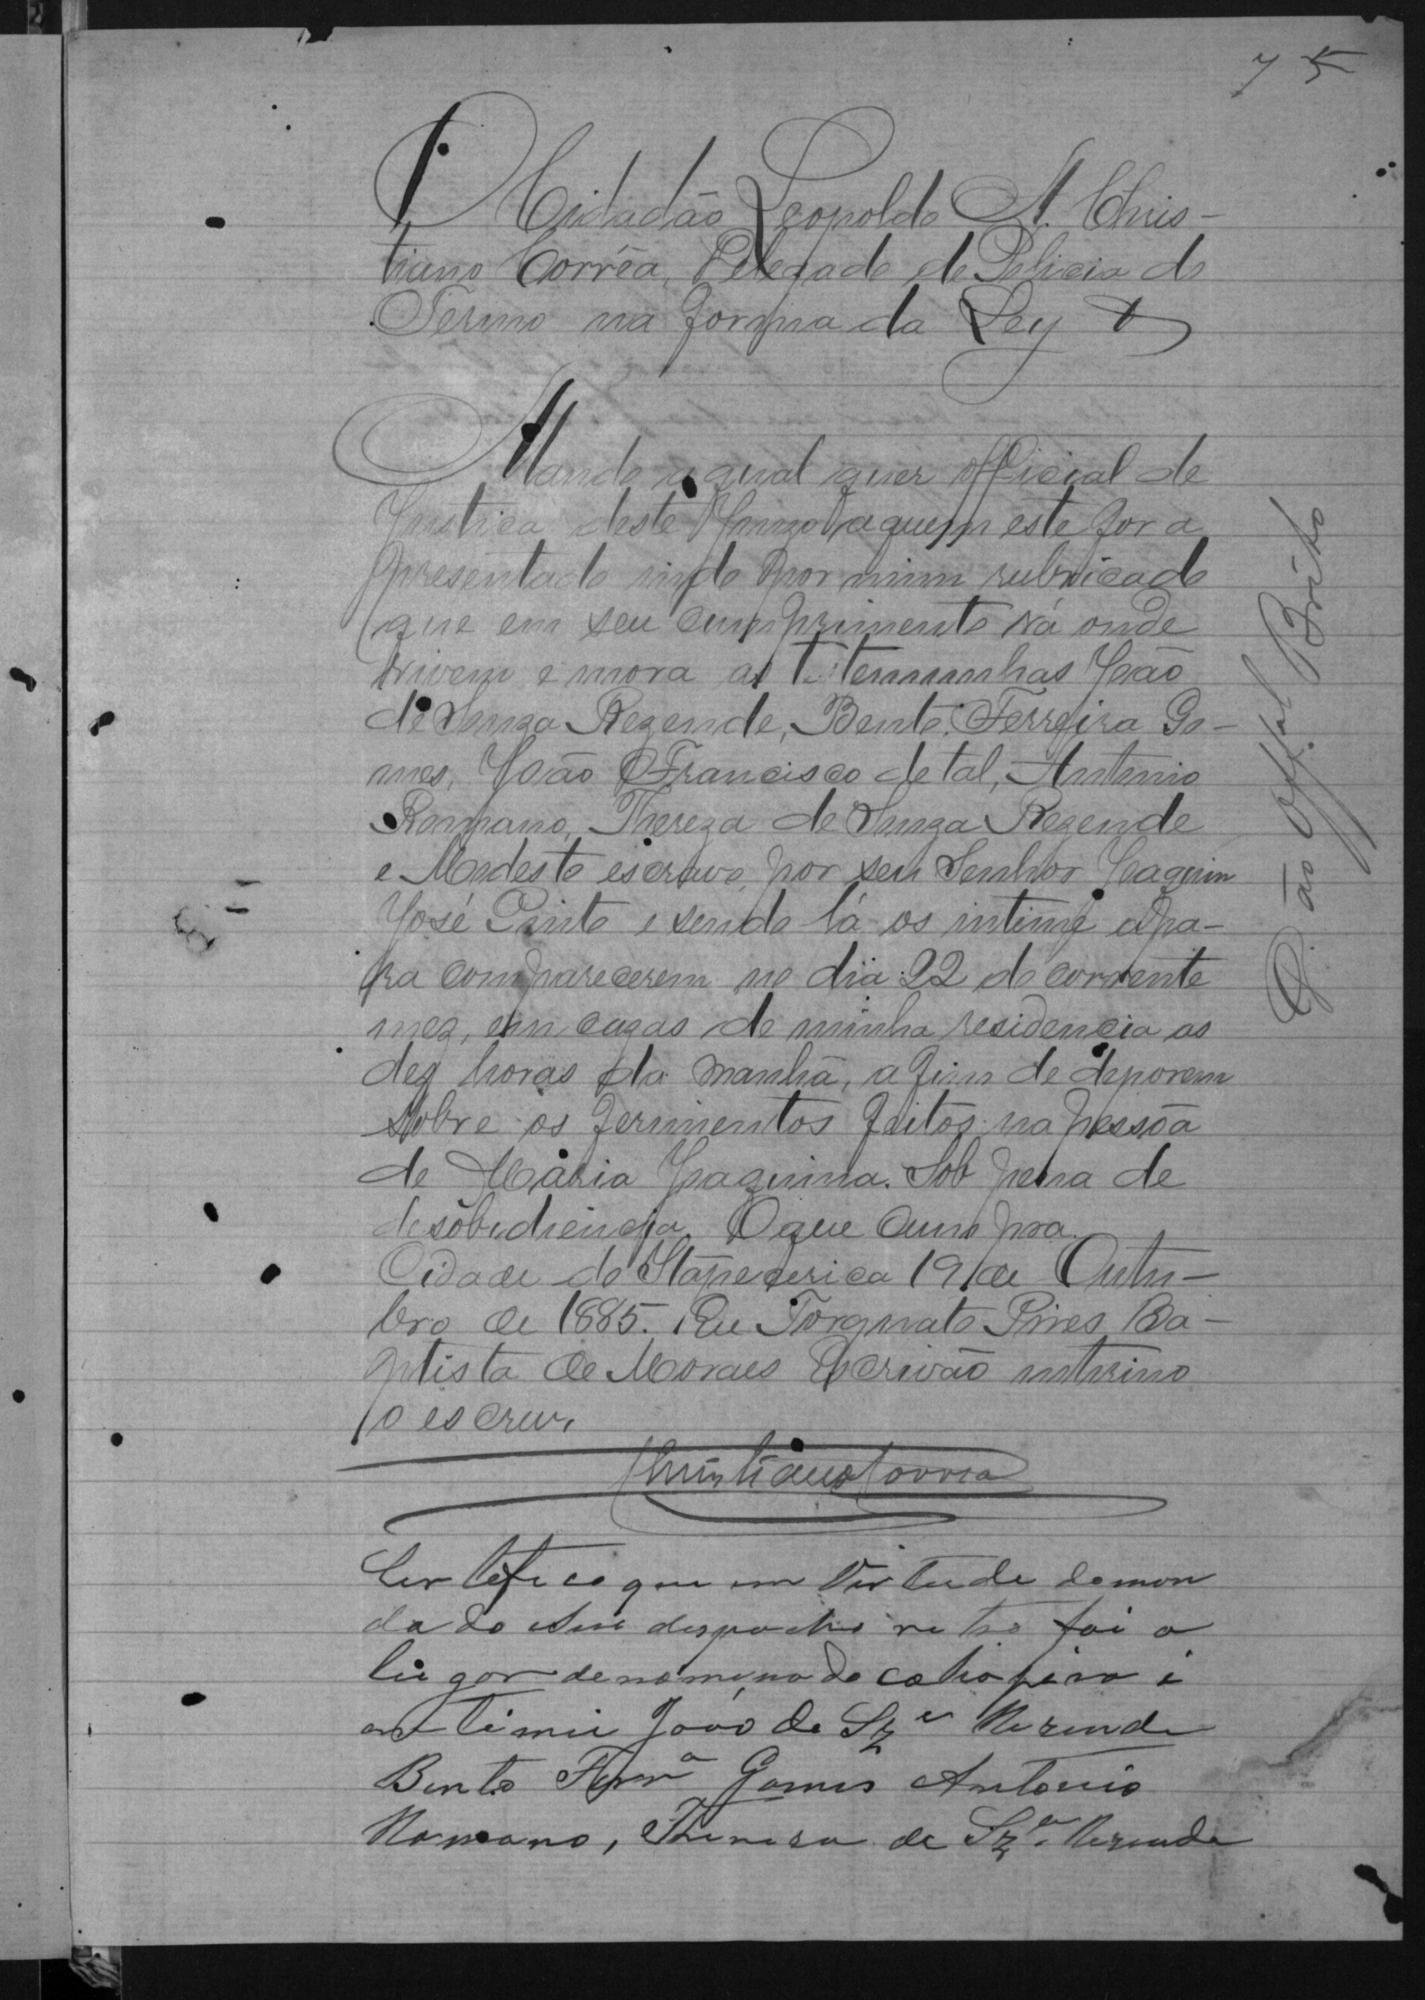 75
O Cidadão Leopoldo A. Chris-
tiano Corrêa, Delegado de Policia do
Termo na forma da Ley &
Mando a qual quer official de
Justica deste Juizo aquem este for a
presentado indo por mim rubricado
que em seu cumprimento vá onde
vivem e mora as testemunhas João
de Souza Rezende, Bento Ferreira Go-
mes, João Francisco de tal, Antonio
Romano, Thereza de Souza Rezende
e Modesto escravo, por seu Senhor Joaquim
José Pinto e sendo lá os intime apa-
ra comparecerem no dia 22 do corrente
mez, em cazas de minha residencia as
dez horas da manhã, afim de deporem
sobre os ferimentos feitos na pessôa
de Maria Joaquina. Sob pena de
desobidiencia. O que cumpra.
Cidade de Itapecerica 19 de Outu-
bro de 1885. Eu Torquato Pires Ba-
ptista de Moraes Escrivão interino
o escrevi
Christiano Corrêa
Certefico que em Virtude do mon
dado e seu despacho retro foi o
lugar denominado e
intimei João de Sza Rezende
Bento Ferra Gomes Antonio
Romano, Thereza de Sza Rezende
D. ão Offal Brito